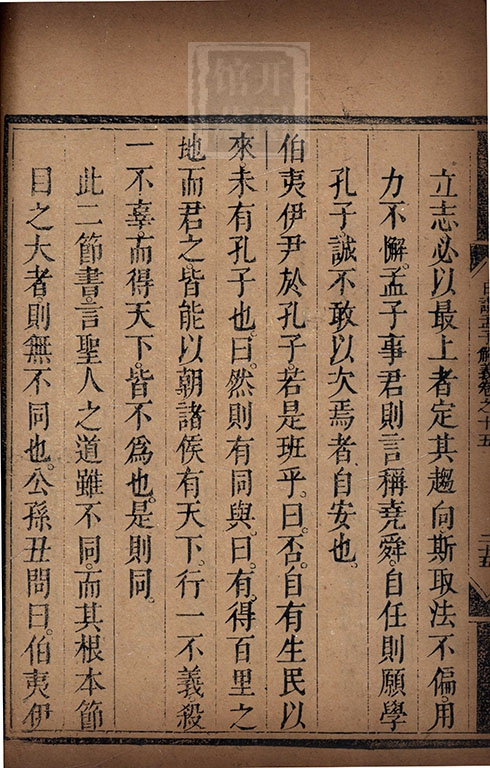 立志必以最上者定其趨向斯取法不偏用
力不懈孟子事君則言稱堯舜自任則願學
孔子誠不敢以次焉者自安也
伯夷伊尹於孔子若是班乎曰否自有生民以
來未有孔子也曰然則有同與曰有得百里之
地而君之皆能以朝諸侯有天下行一不義殺
一不辜而得天下皆不爲也是則同
此二節書言聖人之道雖不同而其根本節
目之大者則無不同也公孫丑問曰伯夷伊